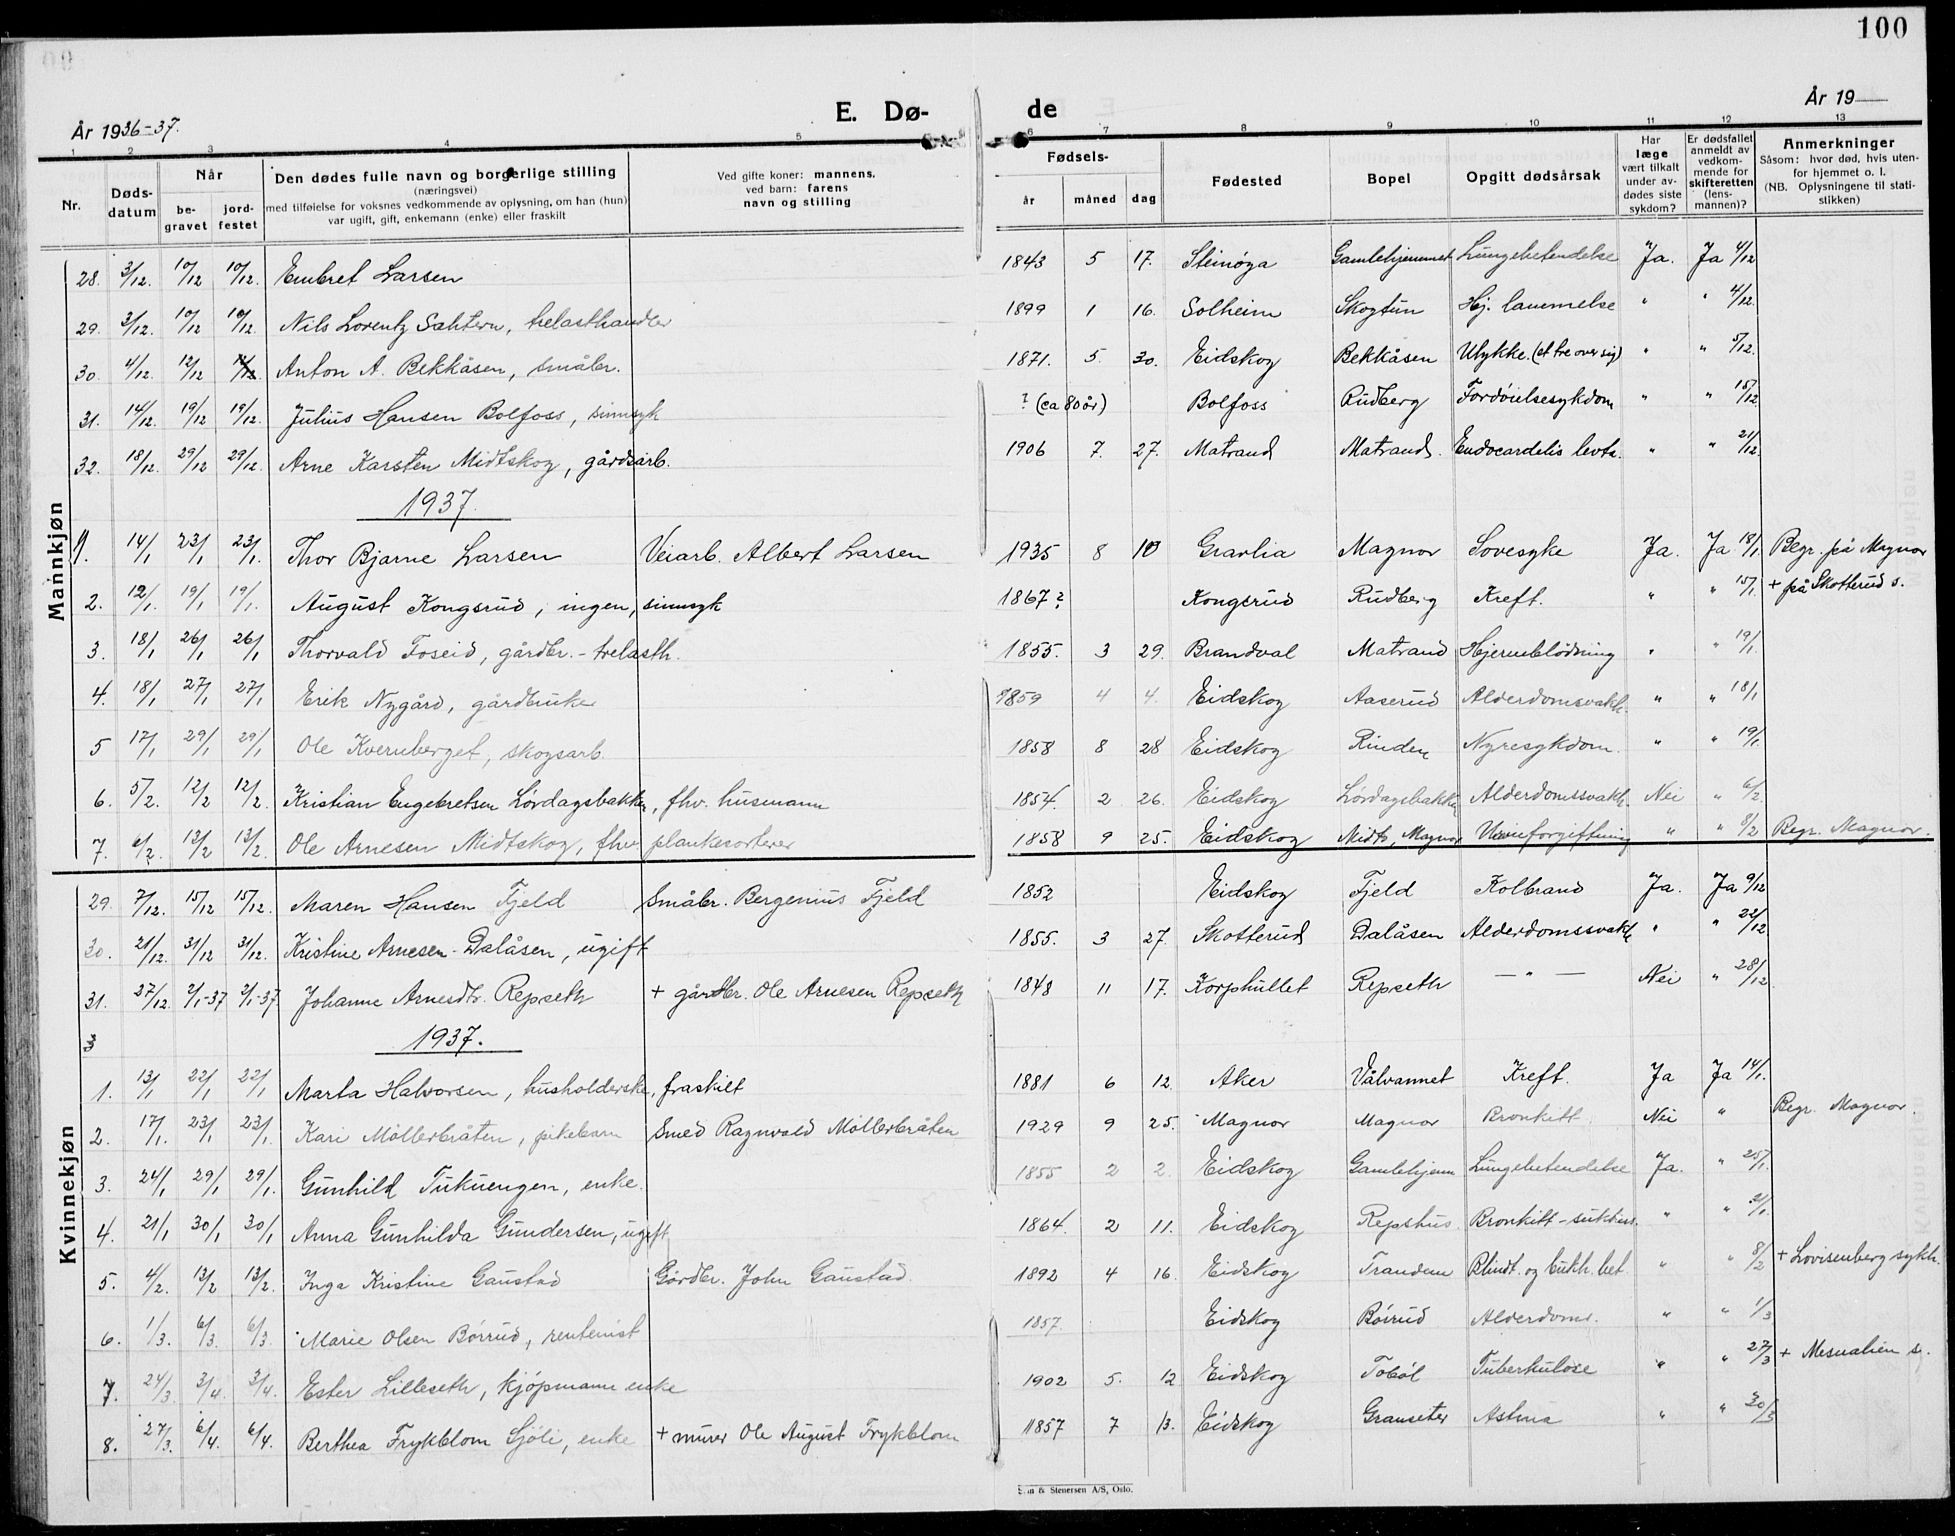 100
År 1936-37. E. Dø- de År 19
1 2 3 4 5 6 7 8 9 10 11 12 13
Nr. Dødsdatum Når begravet jordfestet Den dødes fulle navn og borgerlige stilling (næringsvei) med tilføielse for voksnes vedkommende av oplysning, om han (hun) var ugift, gift, enkemann (enke) eller fraskilt Ved gifte koner: mannens. ved barn: farens navn og stilling Fødsels- år måned dag Fødested Bopel Opgitt dødsårsak Har læge vært tilkalt under avdødes siste sykdom? Er dødsfallet anmeldt av vedkommende for skifteretten (lensmannen)? Anmerkninger Såsom: hvor død, hvis utenfor hjemmet o. l. (NB. Oplysningene til statistikken)
Mannkjøn
28. 3/12. 10/12 10/12. Embret Larsen 1843 5 17. Steinøga Gamlehjemmet Lungebetendelse Ja. Ja 4/12
29. 3/12. 10/12 10/12. Nils Lorentz Sahtern, trelasthandler 1899 1 16. Solheim Skogtun Hj. lammelse " " 4/12.
30. 4/12. 12/12 12/12. Anton A. Bekkåsen, småbr. 1871. 5. 30. Eidskog Bekkåsen Ulykke. (et tre over sig) " " 5/12.
31. 14/12. 19/12 19/12. Julius Hansen Bolfoss, sinnsyk ? (ca 80 år) Bolfoss Rudberg Fordøielsesykdom " " 15/12.
32. 18/12. 29/12 29/12. Arne Karsten Midtskog, gårdsarb. 1906 7. 27. Matrand Matrand. Endocarditis lenta. " " 21/12.
1937.
1. 14/1 23/1 23/1. Thor Bjarne Larsen Veiarb. Albert Larsen 1935 8 10 Gravlia Magnor Sovesyke Ja. Ja 18/1. Begr. på Magnor
2. 12/1. 19/1 19/1. August Kongsrud, ingen, sinnsyk 1867? Kongsrud Rudberg Kreft. " " 15/1. + på Skotterud s.
3. 18/1 26/1 26/1. Thorvald Foseid, gårdbr. - trelasth. 1855. 3 29. Brandval Matrand Hjerneblødning " " 19/1.
4. 18/1 27/1 27/1. Erik Nygård, gårdbruker 1859 4 4. Eidskog Aaserud Alderdomsvakh. " " 18/1
5 17/1 29/1 29/1. Ole Kvernberget, skogsarb. 1858 8 28 Eidskog Rinden Nyresykdom. " " 19/1.
6. 5/2. 12/2 12/2. Kristian Engebretsen Lördagsbakken, fhv. husmann 1854. 2 26. Eidskog Lördagsbakken Alderdomssvakh. Nei " 6/2.
7. 6/2. 13/2 13/2. Ole Arnesen Midtskog, fhv. plankesorterer 1858 9 25. Eidskog Midts, Magnor Urinforgiftning " " 8/2 Begr. Magnor.
Kvinnekjøn
29. 7/12. 15/12 15/12. Maren Hansen Fjeld Småbr. Bergenius Fjeld 1852 Eidskog Fjeld Kolbrand Ja. Ja 9/12
30. 21/12. 31/12 31/12. Kristine Arnesen-Dalåsen, ugift 1855. 3 27. Skotterud Dalåsen Alderdomssvakh. " " 22/12
31. 27/12. 2/1-37 2/1-37 Johanne Arnesdtr. Repseth + gårdbr. Ole Arnesen Repseth 1848 11 17. Korphullet Repseth — " — Nei " 28/12
3 1937.
1. 13/1 22/1 22/1. Marta Halvorsen, husholderske, fraskilt 1881 6 12. Aker Vålvannet Kreft. Ja Ja 14/1.
2. 17/1. 23/1 23/1. Kari Möllerbråten, pikebarn Smed Ragnvald Möllerbråten 1929 9 25. Magnor Magnor Bronkitt Nei " Begr. Magnor.
3. 24/1 29/1 29/1. Gunhild Tukuengen, enke. 1855 2 2. Eidskog Gamlehjem Lungebetendelse Ja. " 25/1.
4. 21/1 30/1 30/1. Anna Gunhilda Gundersen, ugift 1864. 2 11. Eidskog Repshus Bronkitt - " "
5. 4/2. 13/2 13/2. Inga Kristine Gaustad Gårdbr. John Gaustad. 1892 4 16. Eidskog Trandem Blindt. og bukh. bet. " " 8/2 + Lovisenberg sykh.
6. 1/3. 6/3 6/3. Marie Olsen Börrud, rentenist 1857. Eidskog Börrud Alderdoms. " " 1/3
7. 24/3 3/4. 3/4. Ester Lilleseth, kjøpmann enke 1902 5. 12 Eidskog Toböl Tuberkulose " " 27/3 + Mesnalien s.
8. 27/3. 6/4. 6/4. Berthea Frykblom Sjöli, enke + murer Ole August Frykblom 1857 7 13. Eidskog Granseter Astma " " 30/3
& Stenersen A/S, Oslo.